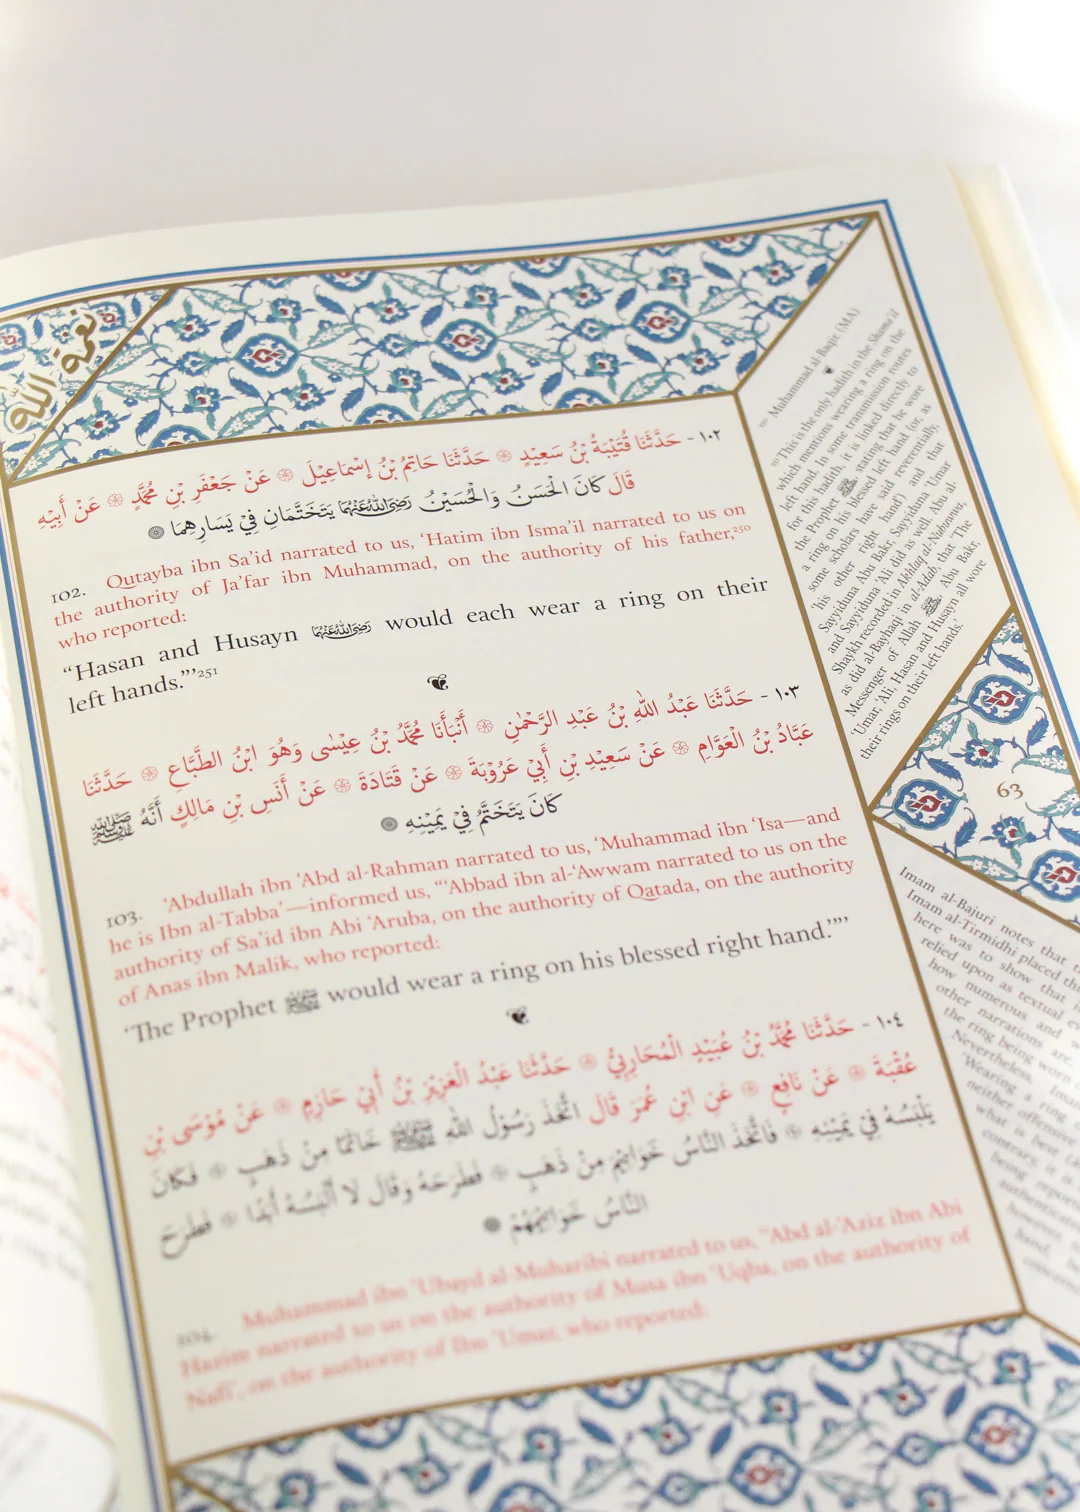 نعمة الله
١٠٢ - حَدَّثَنَا قُتَيْبَةُ بْنُ سَعِيْدٍ ۞ حَدَّثَنَا حَاتِمُ بْنُ إِسْمَاعِيْلَ ۞ عَنْ جَعْفَرِ بْنِ مُحَمَّدٍ ۞ عَنْ أَبِيْهِ
قَالَ كَانَ الْحَسَنُ وَالْحُسَيْنُ رَضِيَ اللهُ عَنْهُمَا يَتَخَتَّمَانِ فِيْ يَسَارِهِمَا
102. Qutayba ibn Sa'id narrated to us, 'Hatim ibn Isma'il narrated to us on
the authority of Ja'far ibn Muhammad, on the authority of his father,250
who reported:
"Hasan and Husayn رَضِيَ اللهُ عَنْهُمَا would each wear a ring on their
left hands."'251
١٠٣ - حَدَّثَنَا عَبْدُ اللهِ بْنُ عَبْدِ الرَّحْمٰنِ ۞ أَنْبَأَنَا مُحَمَّدُ بْنُ عِيْسٰى وَهُوَ ابْنُ الطَّبَّاعِ ۞ حَدَّثَنَا
عَبَّادُ بْنُ الْعَوَّامِ ۞ عَنْ سَعِيْدِ بْنِ أَبِيْ عَرُوْبَةَ ۞ عَنْ قَتَادَةَ ۞ عَنْ أَنَسِ بْنِ مَالِكٍ أَنَّهُ ﷺ
كَانَ يَتَخَتَّمُ فِيْ يَمِيْنِهِ
103. 'Abdullah ibn 'Abd al-Rahman narrated to us, 'Muhammad ibn 'Isa—and
he is Ibn al-Tabba'—informed us, "'Abbad ibn al-'Awwam narrated to us on the
authority of Sa'id ibn Abi 'Aruba, on the authority of Qatada, on the authority
of Anas ibn Malik, who reported:
'The Prophet ﷺ would wear a ring on his blessed right hand.'"'
١٠٤ - حَدَّثَنَا مُحَمَّدُ بْنُ عُبَيْدٍ الْمُحَارِبِيُّ ۞ حَدَّثَنَا عَبْدُ الْعَزِيْزِ بْنُ أَبِيْ حَازِمٍ ۞ عَنْ مُوْسَى بْنِ
عُقْبَةَ ۞ عَنْ نَافِعٍ ۞ عَنِ ابْنِ عُمَرَ قَالَ اتَّخَذَ رَسُوْلُ اللهِ ﷺ خَاتَمًا مِنْ ذَهَبٍ ۞ فَكَانَ
يَلْبَسُهُ فِيْ يَمِيْنِهِ ۞ فَاتَّخَذَ النَّاسُ خَوَاتِيْمَ مِنْ ذَهَبٍ ۞ فَطَرَحَهُ وَقَالَ لَا أَلْبَسُهُ أَبَدًا ۞ فَطَرَحَ
النَّاسُ خَوَاتِيْمَهُمْ
104. Muhammad ibn 'Ubayd al-Muharibi narrated to us, "'Abd al-'Aziz ibn Abi
Hazim narrated to us on the authority of Musa ibn 'Uqba, on the authority of
Nafi', on the authority of Ibn 'Umar, who reported:
250 Muhammad al-Baqir (MA)
251 This is the only hadith in the Shama'il
which mentions wearing a ring on the
left hand. In some transmission routes
for this hadith, it is linked directly to
the Prophet ﷺ stating that he wore
a ring on his blessed left hand (or, as
some scholars have said reverentially,
'his other right hand') and that
Sayyiduna Abu Bakr, Sayyiduna 'Umar
and Sayyiduna 'Ali did as well. Abu al-
Shaykh recorded in Akhlaq al-Nubuwwa,
as did al-Bayhaqi in al-Adab, that 'The
Messenger of Allah ﷺ, Abu Bakr,
'Umar, 'Ali, Hasan and Husayn all wore
their rings on their left hands.'
63
Imam al-Bajuri notes that
Imam al-Tirmidhi placed
here was to show that
relied upon as textual
how numerous and
other narrations are.
the ring being worn
Nevertheless, Imam
'Wearing a ring
neither offensive
what is best
contrary, it is
being
authenticated
however,
hand,